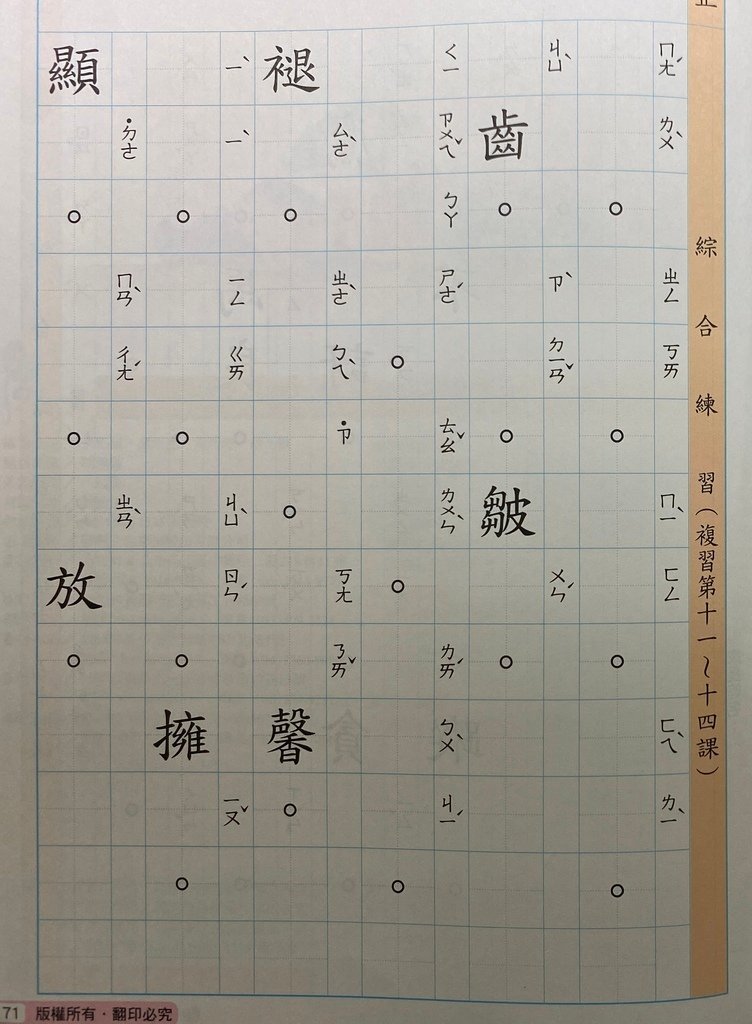 綜合練習（複習第十一～十四課）
ㄇㄤˊ ㄌㄨˋ 。 ㄓㄥ ㄎㄞ 。 ㄇㄧˋ ㄈㄥ 。 ㄈㄟˋ ㄌㄧˋ 。
ㄐㄩˋ 齒 。 ㄗˋ ㄉㄧㄢˇ 。 皺 ㄨㄣˊ 。
ㄑㄧ ㄗㄨㄟˇ ㄅㄚ ㄕㄜˊ 。 ㄊㄠˇ ㄌㄨㄣˋ 。 ㄌㄞˊ ㄅㄨˋ ㄐㄧˊ 。
褪 ㄙㄜˋ 。 ㄓㄜˋ ㄅㄟˋ ˙ㄗ 。 ㄎㄤ ㄋㄞˇ 馨 。
ㄧˋ ㄧˋ 。 ㄧㄥ ㄍㄞ 。 ㄐㄩˋ ㄖㄣˊ 。 擁 ㄧㄡˇ 。
顯 ˙ㄉㄜ 。 ㄇㄢˋ ㄔㄤˊ 。 ㄓㄢˋ 放 。
71 版權所有・翻印必究